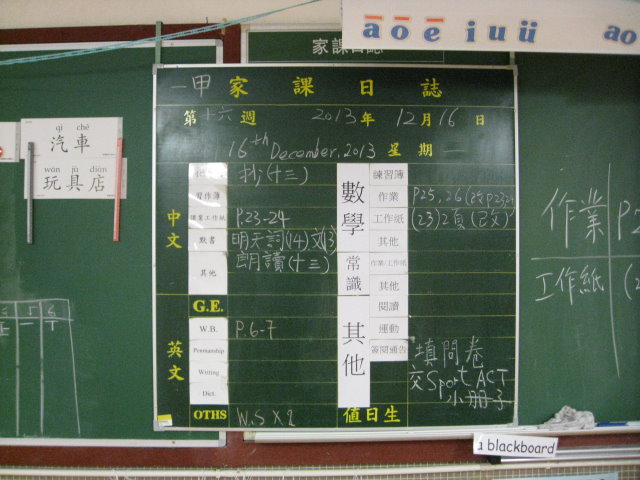 ā ō ē i u ü ao
家課日誌
一甲 家課日誌
第十六週 2013年 12月 16日
16th December, 2013 星期一
qì chē
汽車
wán jù diàn
玩具店
中文
抄(十三)
習作簿
課業工作紙 P.23-24
默書 明天詞(14)文(13)
其他 朗讀(十三)
數學
練習簿
作業 P25, 26
工作紙 (23)2頁(已交)
其他
常識
作業/工作紙
其他
英文
G.E.
W.B. P.6-7
Penmanship
Writing
Dict.
OTHS W.S X 2
其他
閱讀
運動
簽閱通告 填問卷
交Sport ACT
小冊子
值日生
作業 P2
工作紙 (2
a blackboard